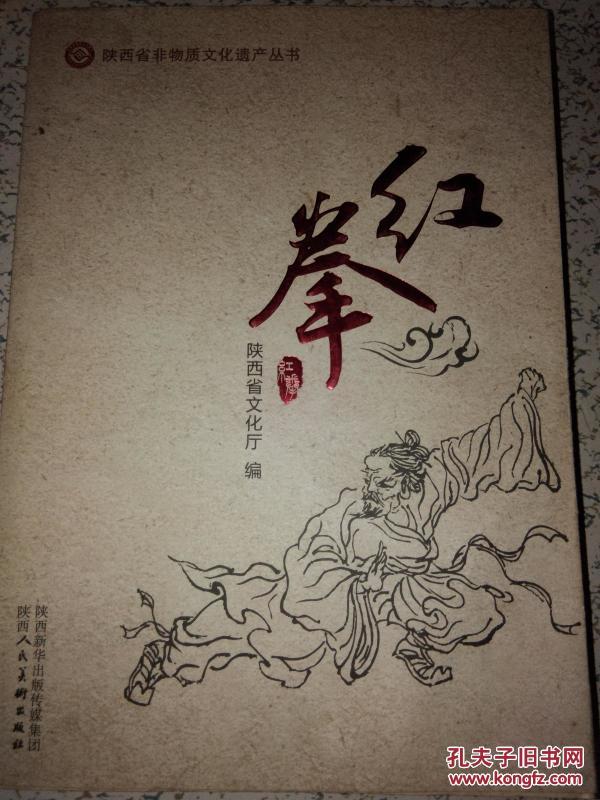 陕西省非物质文化遗产丛书
红拳
紅拳
陕西省文化厅 编
陕西新华出版传媒集团
陕西人民美术出版社
孔夫子旧书网
www.kongfz.com